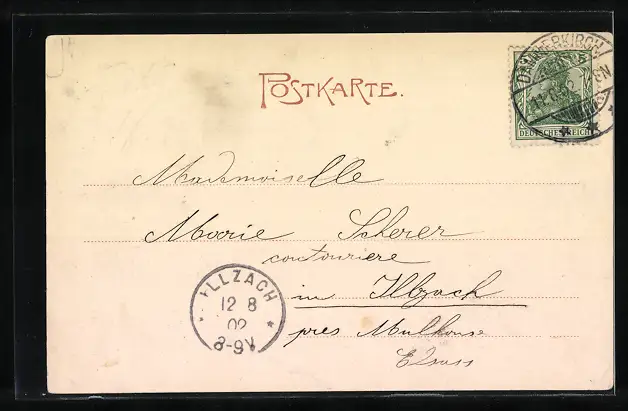 POSTKARTE.
DAMMERKIRCH
DEUTSCHES REICH
Mademoiselle
Marie Scherer
couturiere
in Illzach
près Mulhouse
Elsass
ILLZACH
12 8
02
8-9V